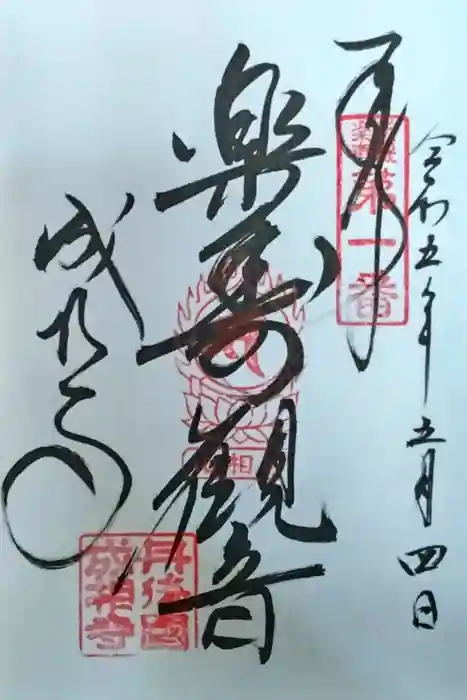 令和五年五月四日
奉拝
第一番
楽寿観音
成相寺
丹後國
成相寺